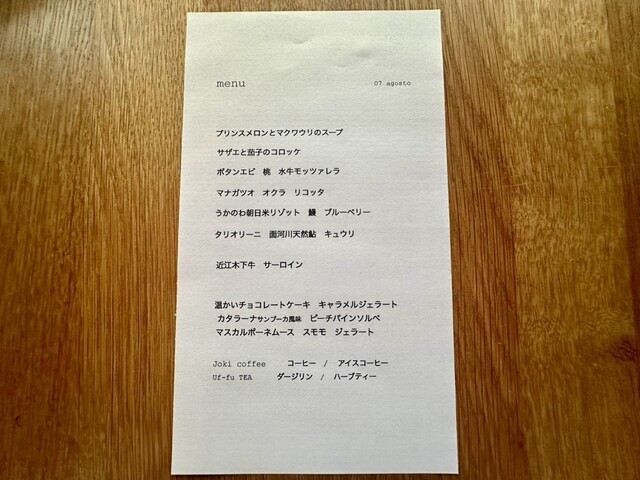 menu 07 agosto
プリンスメロンとマクワウリのスープ
サザエと茄子のコロッケ
ボタンエビ 桃 水牛モッツァレラ
マナガツオ オクラ リコッタ
うかのわ朝日米リゾット 鰻 ブルーベリー
タリオリーニ 面河川天然鮎 キュウリ
近江木下牛 サーロイン
温かいチョコレートケーキ キャラメルジェラート
カタラーナサンブーカ風味 ピーチパインソルベ
マスカルポーネムース スモモ ジェラート
Joki coffee コーヒー / アイスコーヒー
Uf-fu TEA ダージリン / ハーブティー